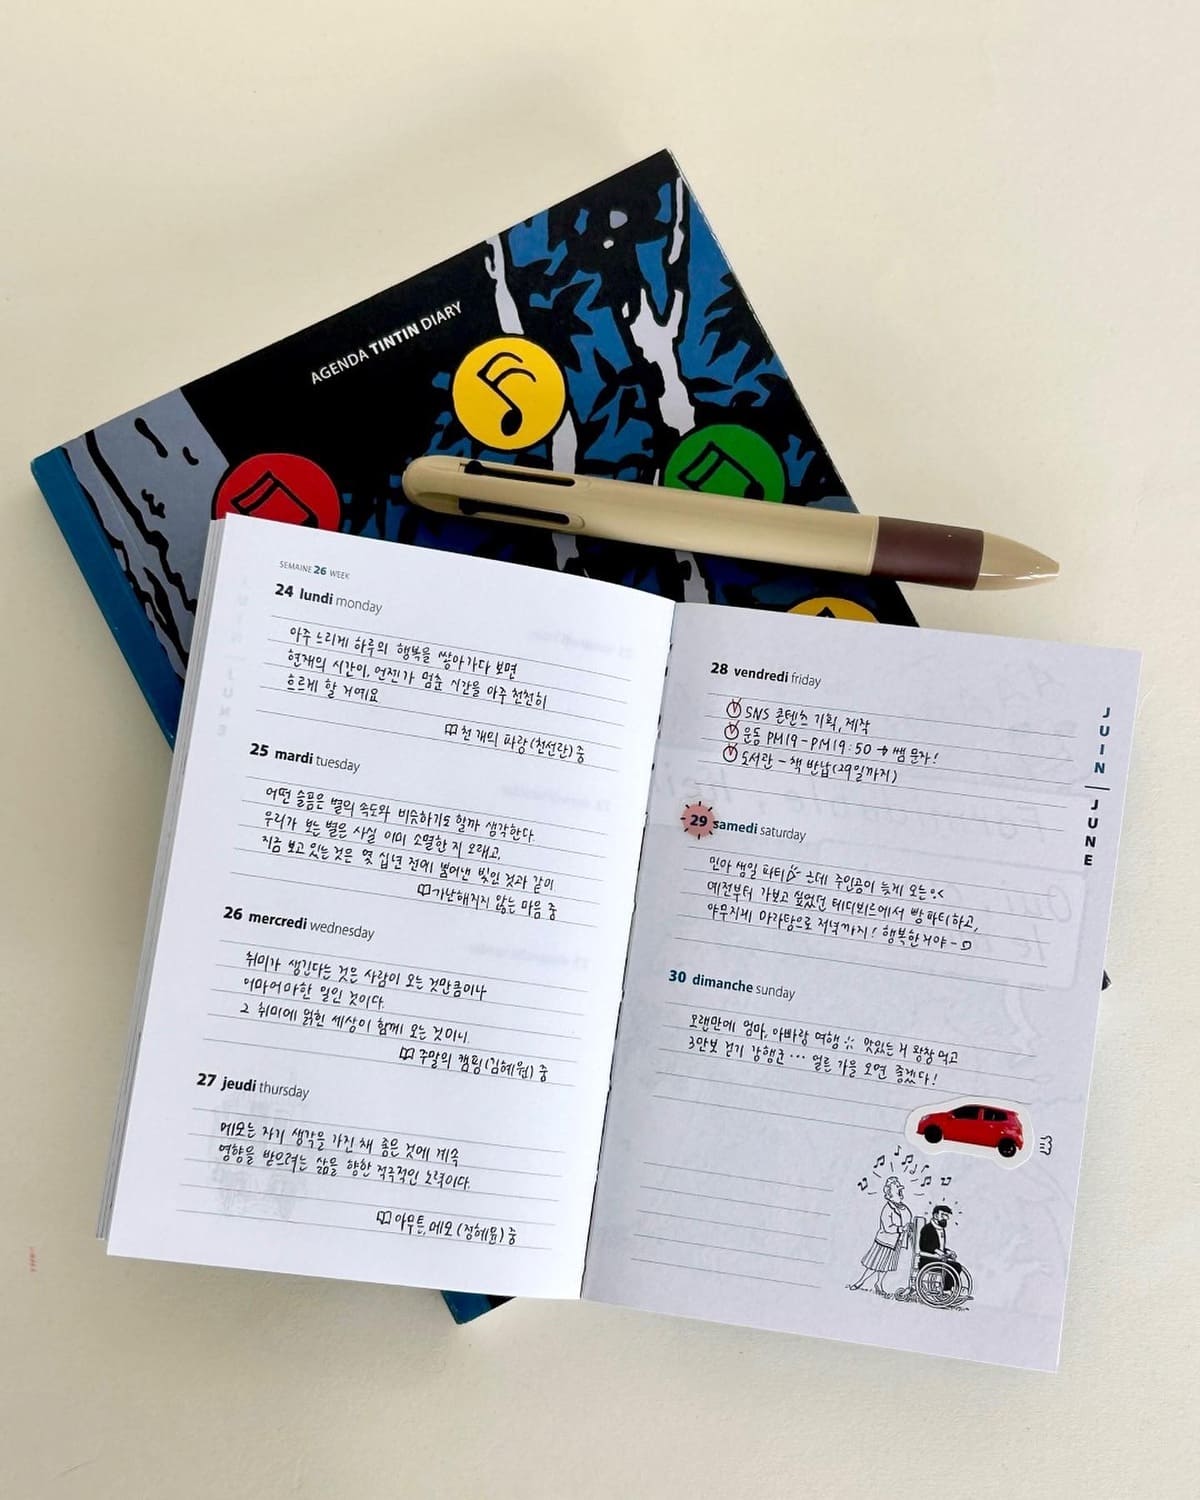 AGENDA TINTIN DIARY
SEMAINE 26 WEEK
24 lundi monday
아주 느리게 하루의 행복을 쌓아가다 보면
현재의 시간이, 언젠가 멈춘 시간을 아주 천천히
흐르게 할 거예요
천 개의 파랑(천선란) 중
25 mardi tuesday
어떤 슬픔은 별의 속도와 비슷하기도 할까 생각한다.
우리가 보는 별은 사실 이미 소멸한 지 오래고,
지금 보고 있는 것은 몇 십년 전에 뿜어낸 빛인 것과 같이
가난해지지 않는 마음 중
26 mercredi wednesday
취미가 생긴다는 것은 사람이 오는 것만큼이나
어마어마한 일인 것이다.
그 취미에 얽힌 세상이 함께 오는 것이니.
주말의 캠핑(김혜원) 중
27 jeudi thursday
메모는 자기 생각을 가진 채 좋은 것에 계속
영향을 받으려는 삶을 향한 적극적인 노력이다.
아무튼, 메모 (정혜윤) 중
28 vendredi friday
SNS 콘텐츠 기획, 제작
운동 PM19-PM19:50 → 쌤 문자!
도서관 - 책 반납(29일까지)
29 samedi saturday
민아 생일 파티 근데 주인공이 늦게 오는
예전부터 가보고 싶었던 테디뵈르에서 빵 파티하고,
야무지게 마라탕으로 저녁까지! 행복한거야~
30 dimanche sunday
오랜만에 엄마, 아빠랑 여행 맛있는 거 왕창 먹고
3만보 걷기 강행군 ... 얼른 가을 오면 좋겠다!
JUIN | JUNE